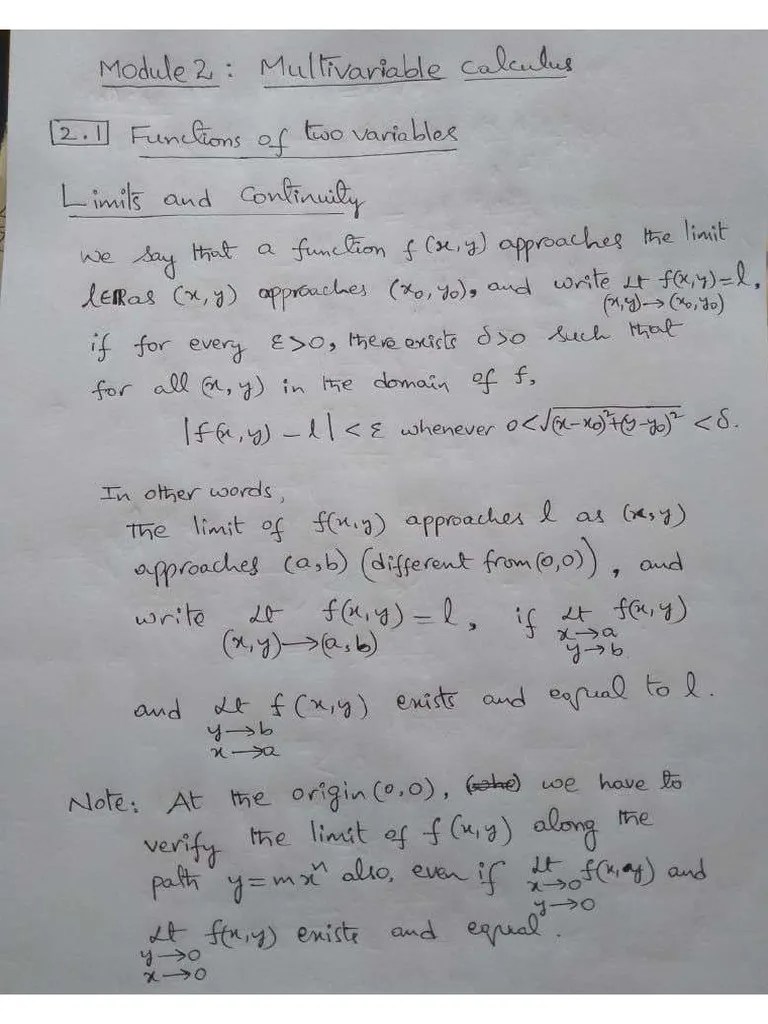 Module 2 : Multivariable calculus
2.1 Functions of two variables
Limits and continuity
we say that a function f(x,y) approaches the limit
l∈ℝ as (x,y) approaches (x₀,y₀), and write Lt f(x,y)=l,
(x,y)→(x₀,y₀)
if for every ε>0, there exists δ>0 such that
for all (x,y) in the domain of f,
|f(x,y) – l| < ε whenever 0<√(x-x₀)²+(y-y₀)² <δ.
In other words,
the limit of f(x,y) approaches l as (x,y)
approaches (a,b) (different from (0,0)), and
write Lt f(x,y) = l, if Lt f(x,y)
(x,y)→(a,b) x→a
y→b
and Lt f(x,y) exists and equal to l.
y→b
x→a
Note: At the origin (0,0), we have to
verify the limit of f(x,y) along the
path y=mxⁿ also, even if Lt f(x,y) and
x→0
y→0
Lt f(x,y) exists and equal.
y→0
x→0